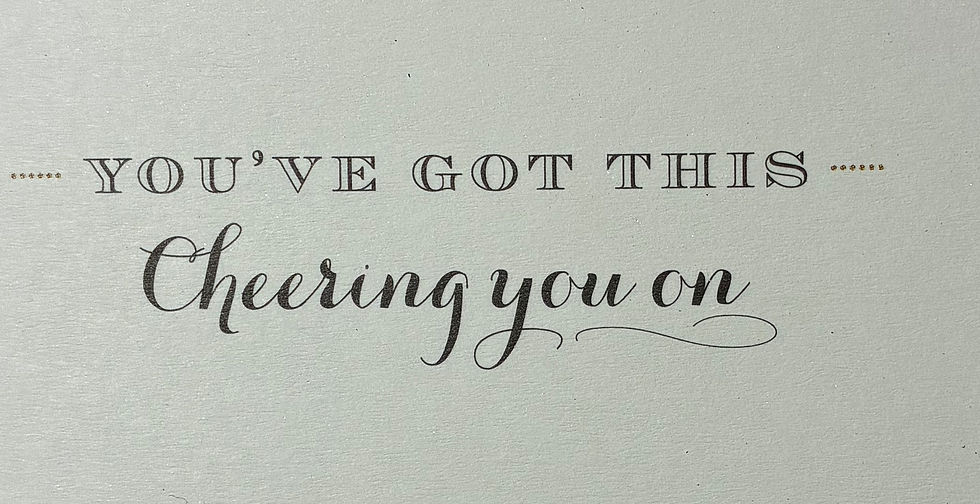 YOU'VE GOT THIS
Cheering you on